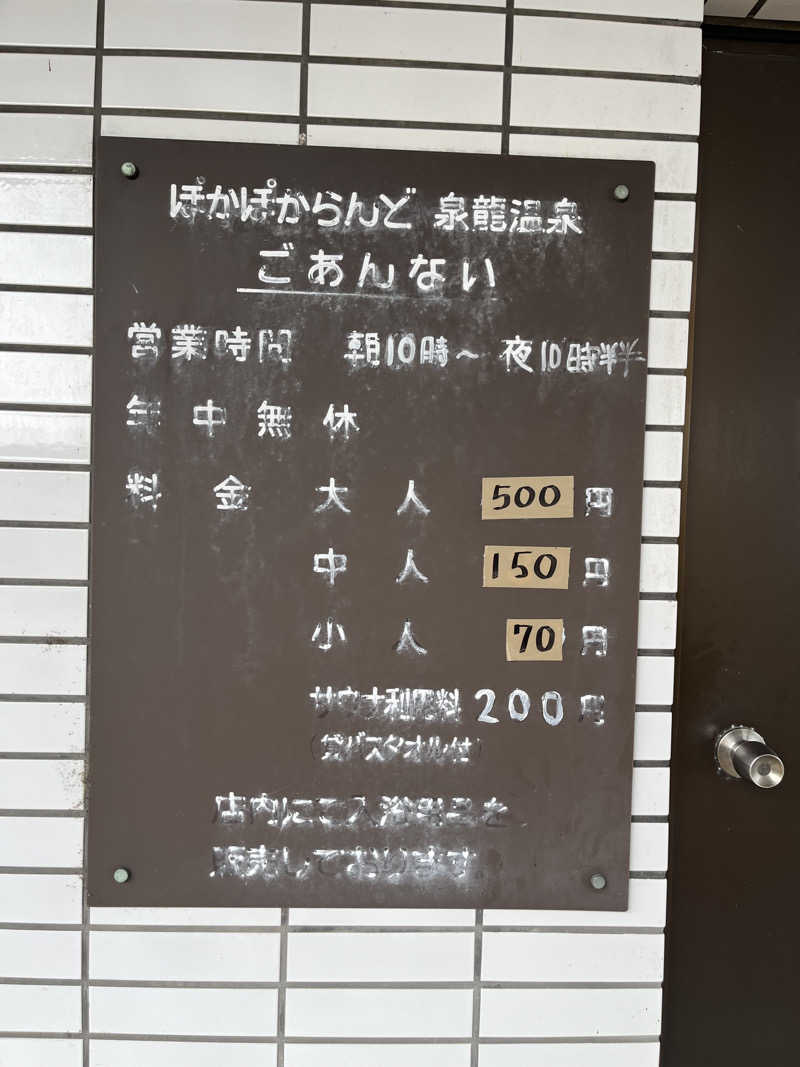 ぽかぽからんど 泉龍温泉
ごあんない
営業時間 朝10時～夜10時半
年中無休
料金 大人 500円
中人 150円
小人 70円
サウナ利用料 200円
(貸バスタオル付)
店内にご入浴用品を、
販売しております。